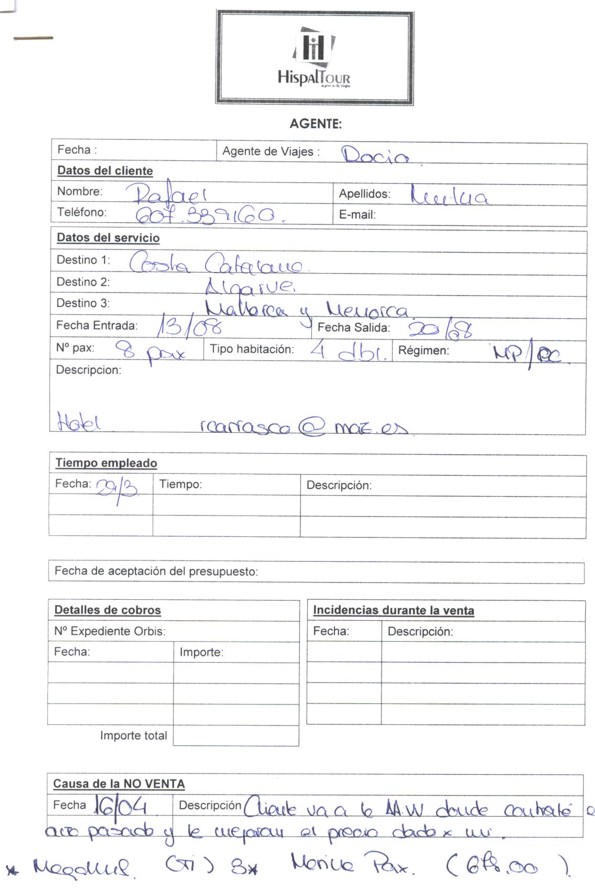 HispalTour
AGENTE:
Fecha : Agente de Viajes : Rocio
Datos del cliente
Nombre: Rafael Apellidos:
Teléfono: 607.339160. E-mail:
Datos del servicio
Destino 1: Costa Catalana
Destino 2: Algarve.
Destino 3: Mallorca y Menorca.
Fecha Entrada: 13/08 Fecha Salida: 20/08
Nº pax: 8 pax Tipo habitación: 4 dbl. Régimen: MP/PC
Descripcion:
Hotel rcarrasco@maz.es
Tiempo empleado
Fecha: 29/3 Tiempo: Descripción:
Fecha de aceptación del presupuesto:
Detalles de cobros
Nº Expediente Orbis:
Fecha: Importe:
Importe total
Incidencias durante la venta
Fecha: Descripción:
Causa de la NO VENTA
Fecha 16/04 Descripción Cliente va a la AAVV donde contrató el
año pasado y le mejoran el precio dado x mi.
* (TI) 3* Pax. (678.00)